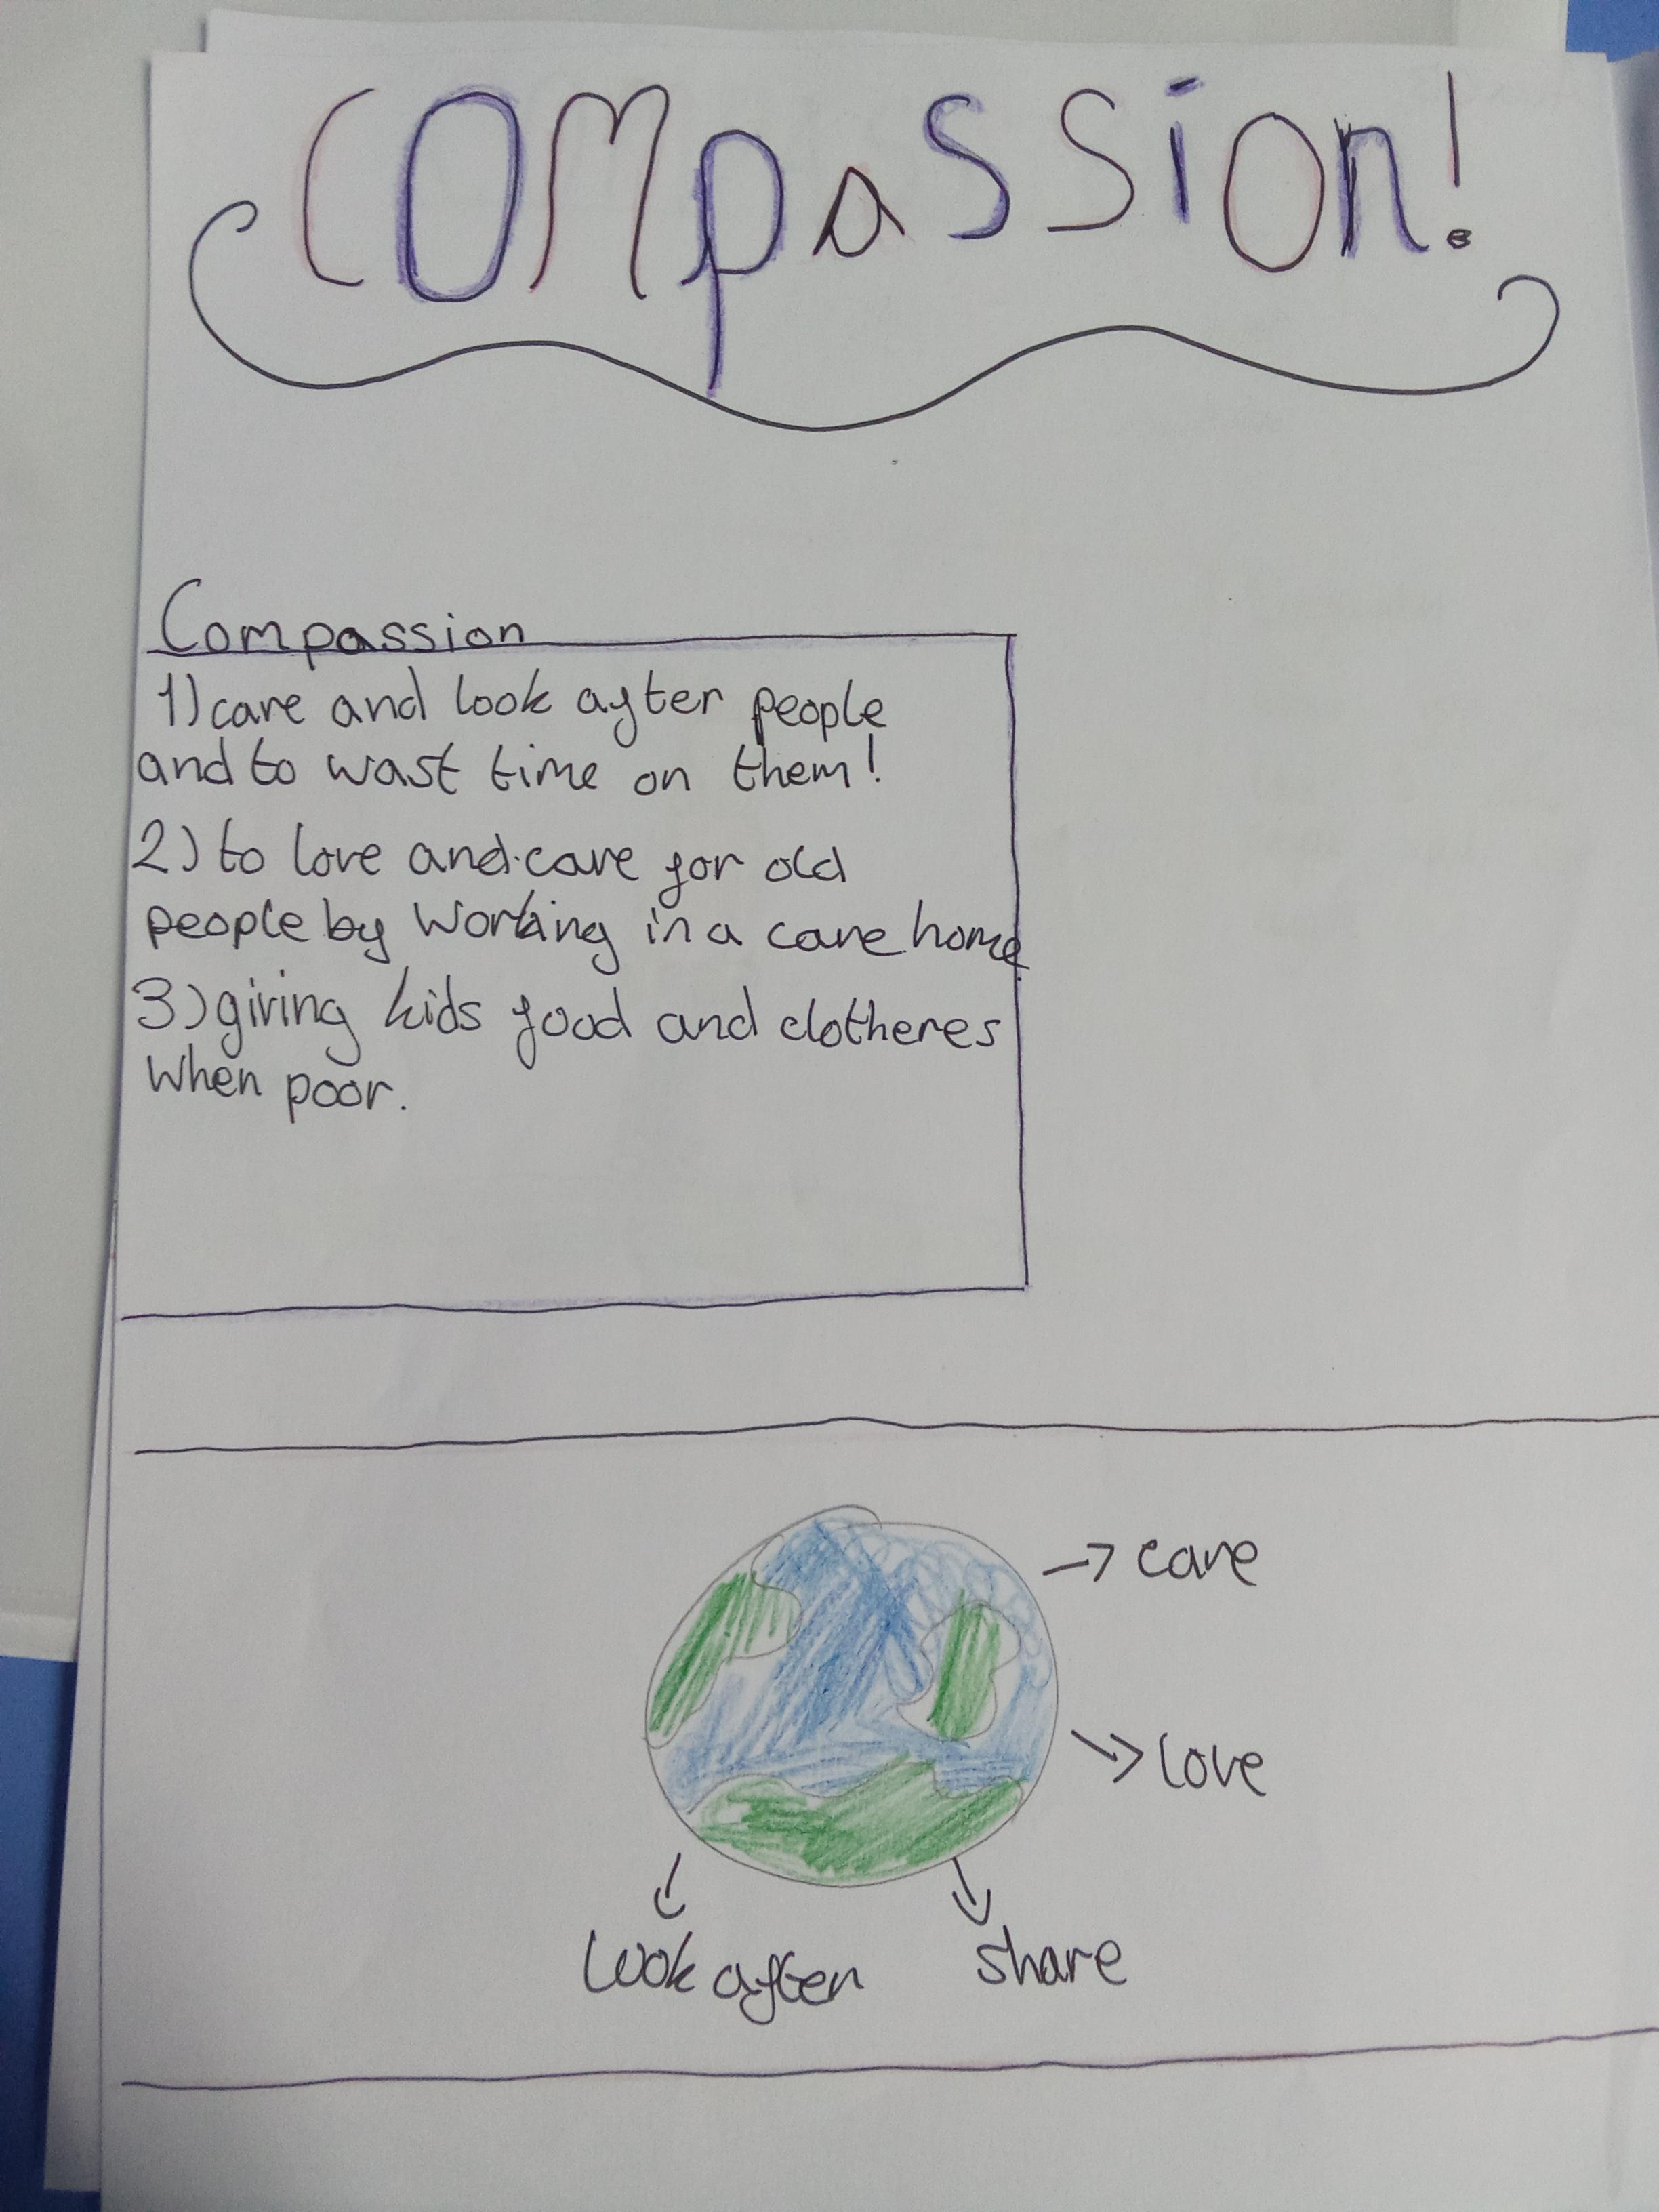 COMpaSSion!
Compassion
1) care and look after people
and to wast time on them!
2) to love and care for old
people by working in a care home
3) giving kids food and clotheres
when poor.
→ care
→ love
look after
share